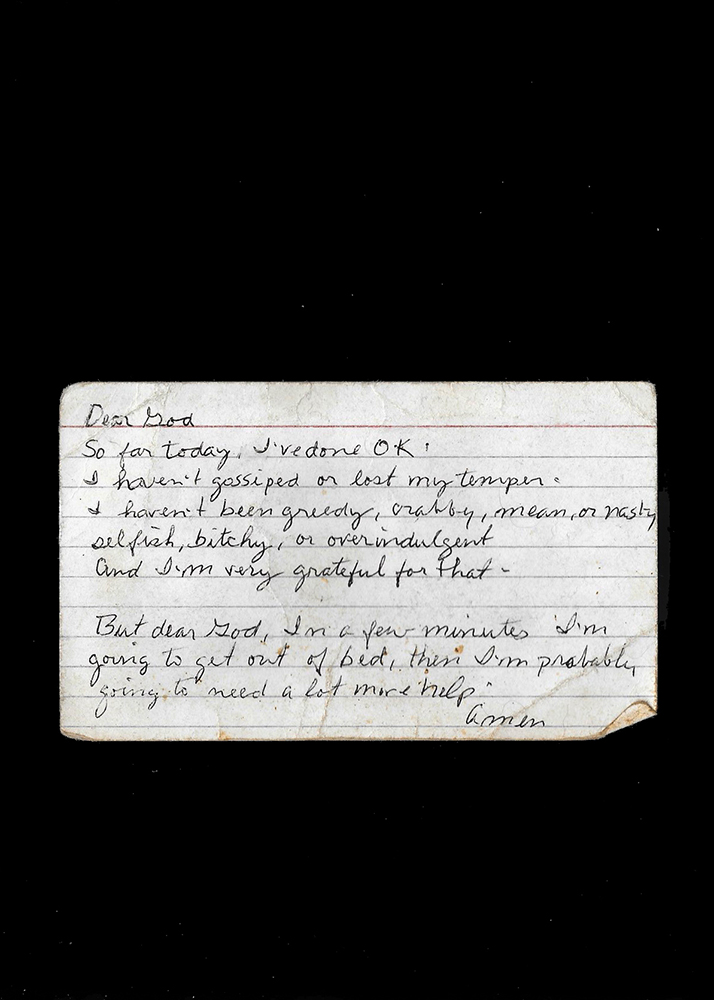 Dear God
So far today, I've done O.K.
I haven't gossiped or lost my temper.
I haven't been greedy, crabby, mean, or nasty
selfish, bitchy, or overindulgent
And I'm very grateful for that -

But dear God, In a few minutes I'm
going to get out of bed, then I'm probably
going to need a lot more help.
Amen